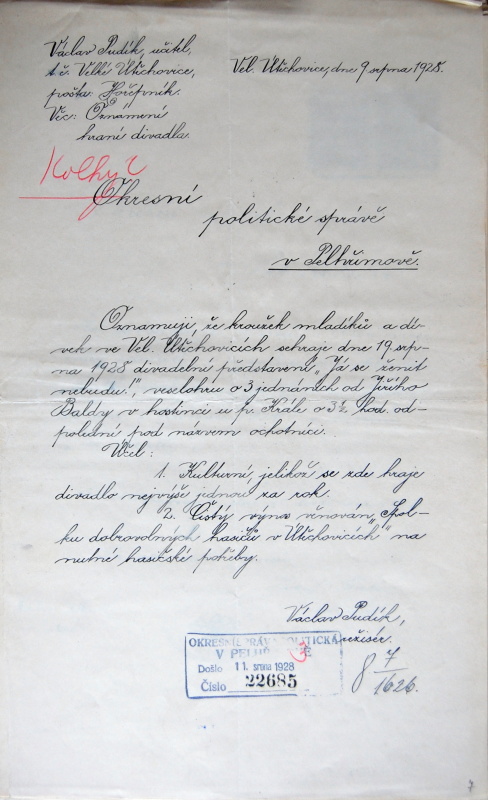 Václav Pudík, učitel,
t. č. Velké Útěchovice,
pošta: Hořepník.
Věc: Oznámení
hraní divadla.
Vel. Útěchovice, dne 9 srpna 1928.
Okresní
politické správě
v Pelhřimově.
Oznamuji, že kroužek mladíků a dí-
vek ve Vel. Útěchovicích sehraje dne 19. srp-
na 1928 divadelní představení „Já se ženit
nebudu!", veselohru o 3 jednáních od Jiřího
Baldy v hostinci u p. Krále o 3½ hod. od-
poledni pod názvem ochotníci.
Účel:
1. Kulturní, jelikož se zde hraje
divadlo nejvýše jednou za rok.
2. Čistý výnos věnován „Spol-
ku dobrovolných hasičů v Útěchovicích" na
nutné hasičské potřeby.
Václav Pudík,
režisér.
OKRESNÍ SPRÁVA POLITICKÁ
V PELHŘIMOVĚ
Došlo 11. srpna 1928
Číslo 22685
8 7/1626.
7